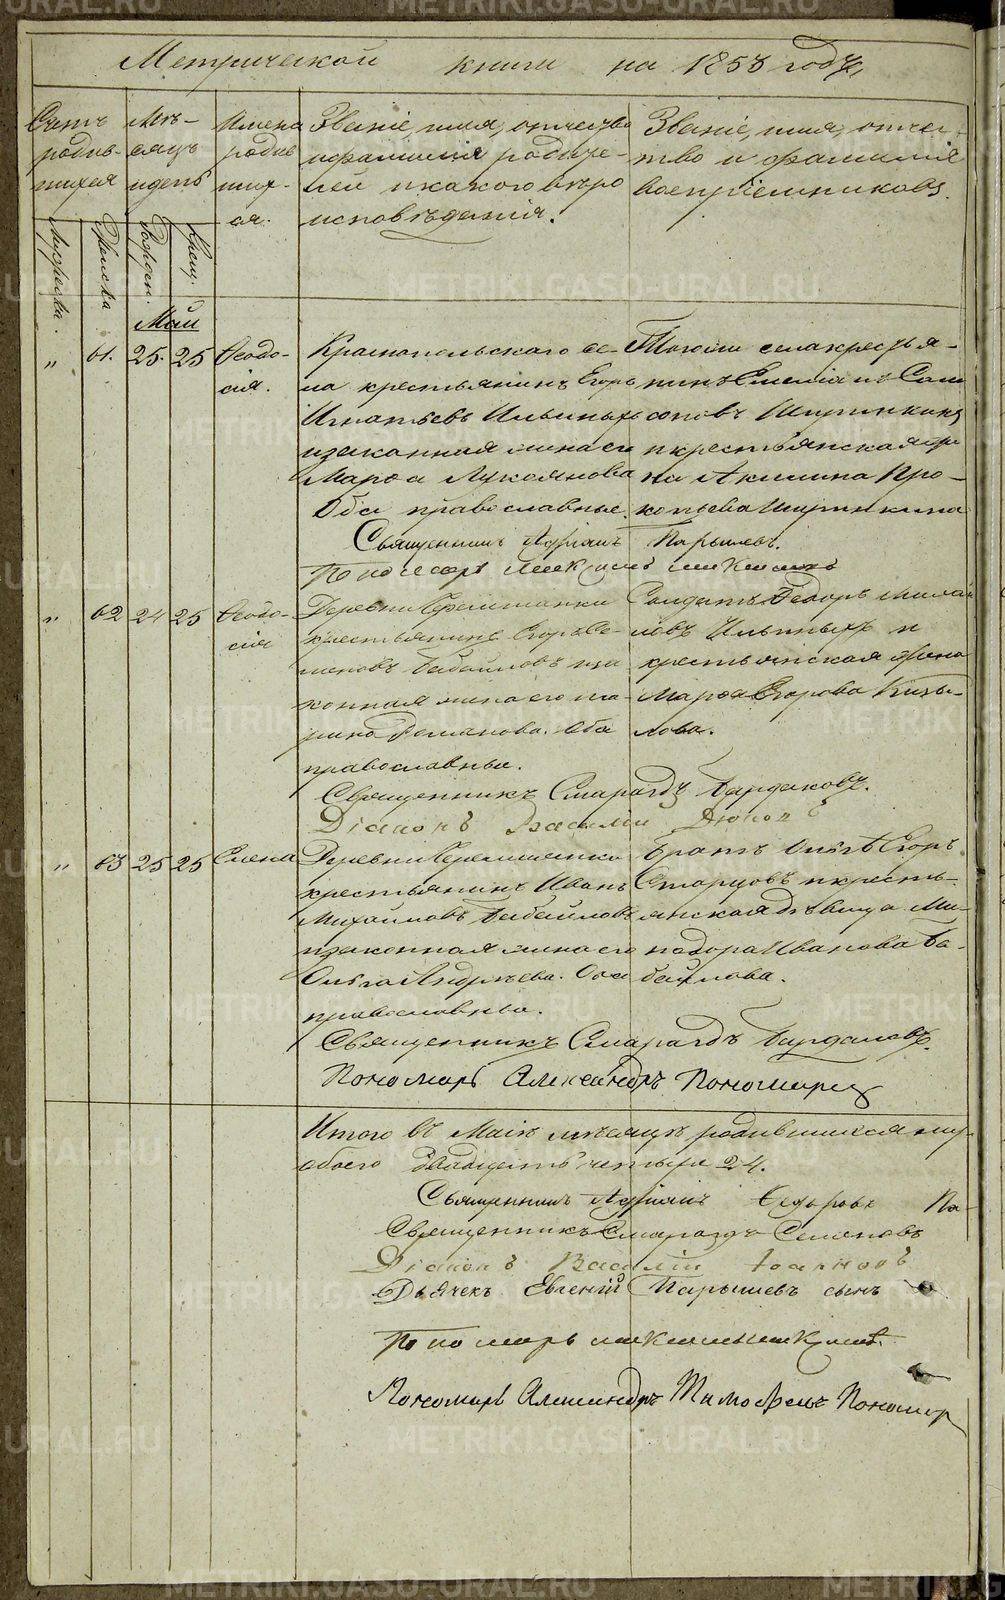 Метрической книги на 1853 годъ,
Счетъ родив-шихся
Мѣ-сяцъ и день
Имена родив-ших-ся.
Званіе, имя, отчество и фамилія родите-лей и какого вѣро исповѣданія.
Званіе, имя, отчес-тво и фамилія воспріемниковъ.
Мужеска.
Женска
Рожден.
Крещ.
Май
" 61. 25. 25 Ѳеодо-сія.
Краснопольскаго се-
ла крестьянинъ Егоръ
Игнатьевъ Ильиныхъ
и законная жена его
Марѳа Лукоянова
Оба православные.
Тогоже села крестья-
нинъ
сановъ Ширинкинъ
и крестьянская
на Акилина Про-
копьева Ширинкина
Священникъ Адріанъ Парышевъ.
Пономарь
" 62 24 25 Ѳеодо-сія
Деревни
крестьянинъ Егоръ Се-
меновъ Бабайловъ и за
конная жена его Ма-
рина Романова. Оба
православные.
Солдатъ Ѳедоръ Михай
ловъ Ильиныхъ и
крестьянская жена
Марѳа Егорова
лова.
Священникъ Смарагдъ
Діаконъ Василій Поповъ
" 63 25 25 Елена
Деревни
крестьянинъ Иванъ
Михайловъ Бабайловъ
и законная жена его
Ольга Андреева. Оба
православные.
Братъ Егоръ
Старцовъ и кресть-
янская дѣвица Ми-
нодора Иванова Ба-
байлова.
Священникъ Смарагдъ
Пономарь Александръ Пономарев
Итого въ Маіѣ мѣсяцѣ родившихся
обоего двадцать четыре 24.
Священникъ Адріанъ Ѳедоровъ Па-
Священникъ Смарагдъ Семеновъ
Діаконъ Василій Іоанновъ
Дьячекъ Евгеній Парышевъ сынъ
Пономарь
Пономарь Александръ Тимоѳеевъ Пономар
METRIKI.GASO-URAL.RU